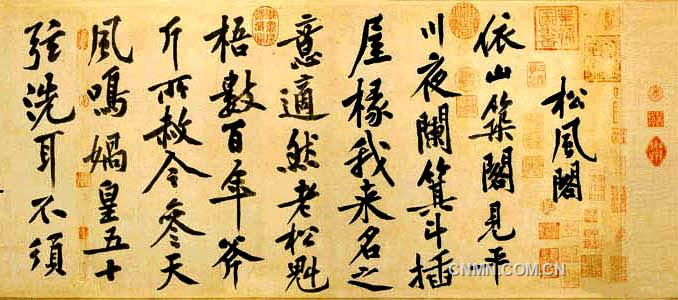 松風閣
依山築閣見平
川夜闌箕斗插
屋椽我來名之
意適然老松魁
梧數百年斧
斤所赦今參天
風鳴媧皇五十
弦洗耳不須
CNMN.COM.CN